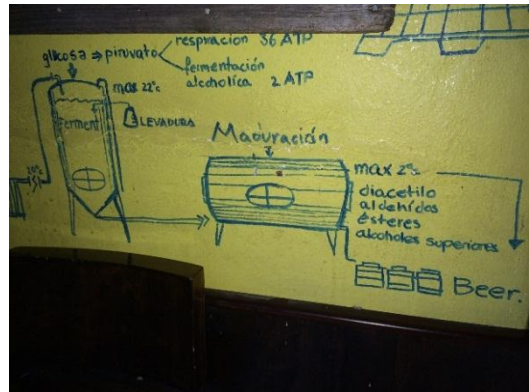 respiracion 36 ATP
glucosa ⇒ piruvato
fermentación
alcoholica 2 ATP
max 22°c
Ferment
LEVADURA
20°c
Maduración
max 2°c
diacetilo
aldehídos
ésteres
alcoholes superiores
Beer.